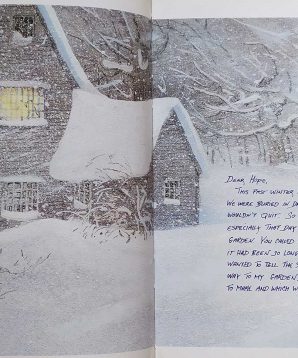 DEAR HOPE,
THIS PAST WINTER
WE WERE BURIED IN
WOULDN'T QUIT. SO
ESPECIALLY THAT DAY
GARDEN. YOU CALLED
IT HAD BEEN SO LONG
WANTED TO TELL THE
WAY TO MY GARDEN
TO MAKE AND WHICH